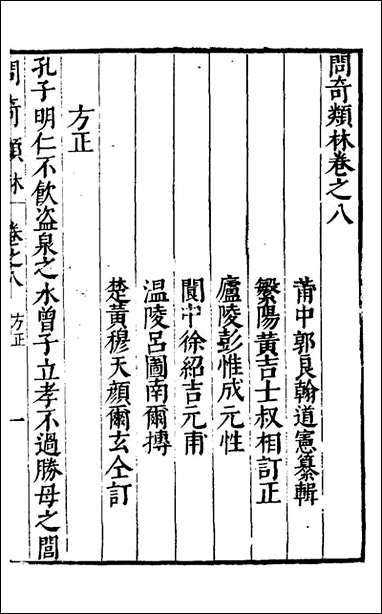 問奇類林卷之八
莆中郭良翰道憲纂輯
繁陽黃吉士叔相訂正
廬陵彭惟成元性
閬中徐紹吉元甫
温陵呂圖南爾摶
楚黃穆天顏爾玄仝訂
方正
孔子明仁不飲盜泉之水曾子立孝不過勝母之閭
問奇類林 卷之八 方正 一